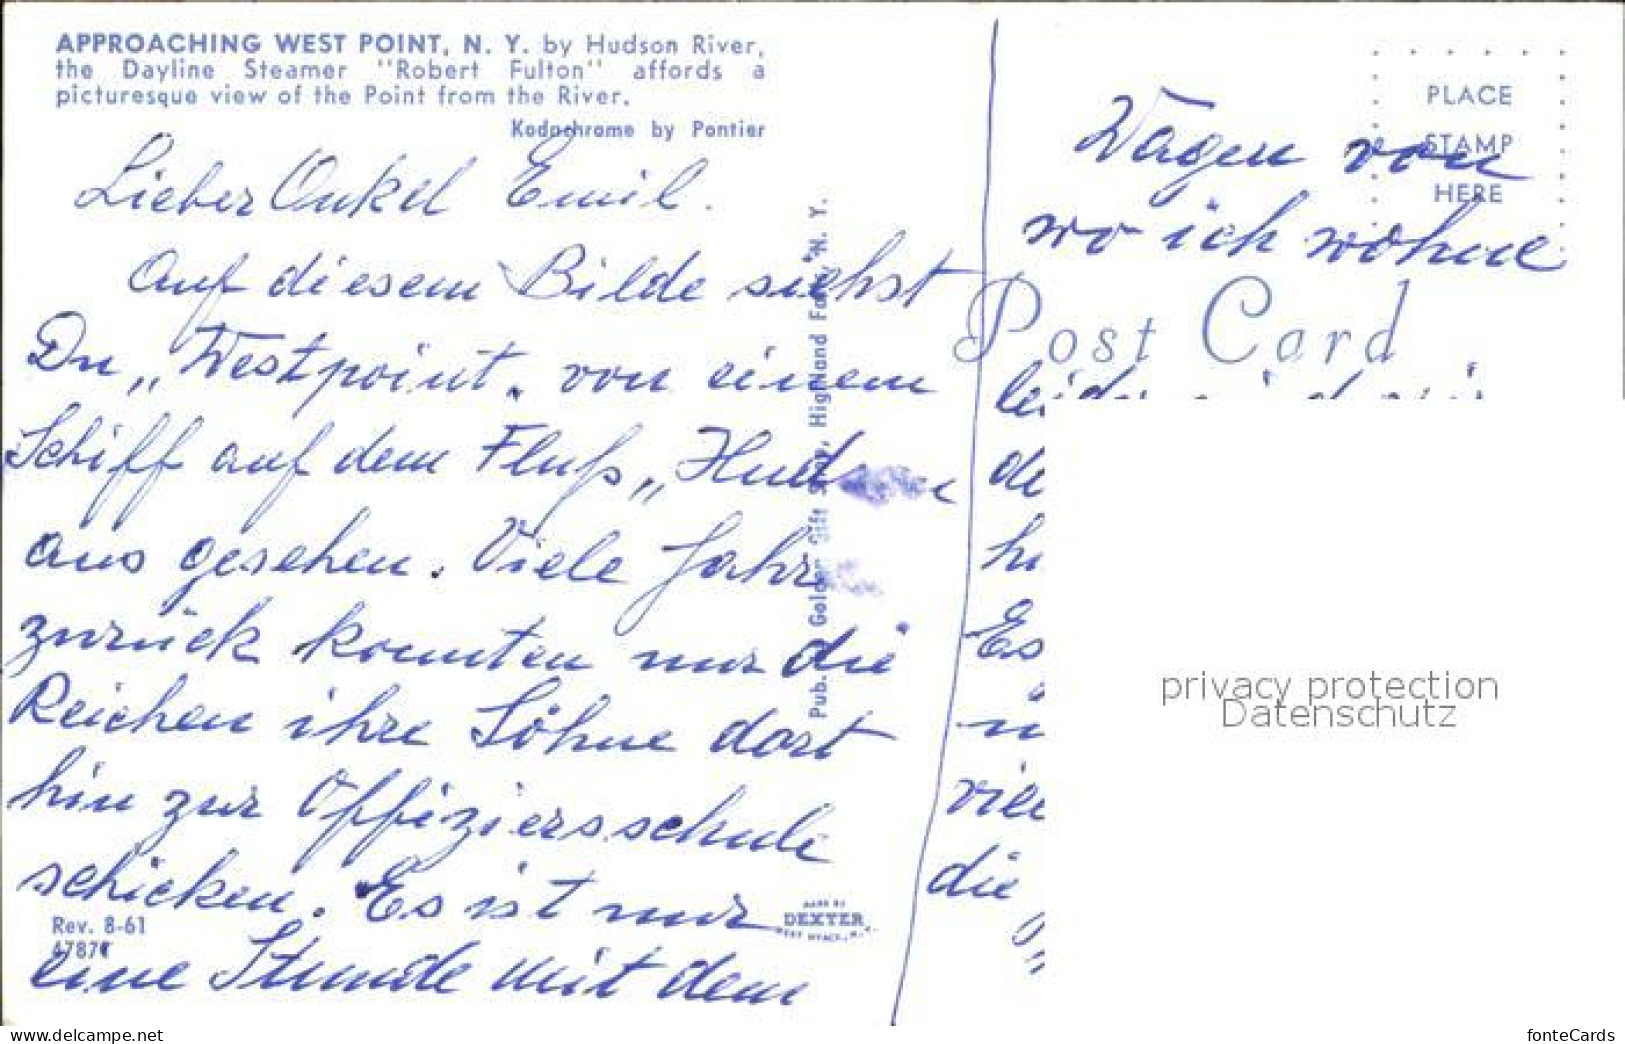 APPROACHING WEST POINT, N. Y. by Hudson River,
the Dayline Steamer "Robert Fulton" affords a
picturesque view of the Point from the River.
Kodachrome by Pontier
Lieber Onkel Emil.
Auf diesem Bilde siehst
Du „Westpoint" von einem
Schiff auf dem Fluß „Hud
aus gesehen. Viele Jahre
zurück konnten nur die
Reichen ihre Söhne dort
hin zur Offiziersschule
schicken. Es ist nur
eine Stunde mit dem
Rev. 8-61
MADE BY
DEXTER
WEST NYACK, N.Y.
Pub. Golden Gift Shop, Highland Falls, N. Y.
PLACE
STAMP
HERE
Wagen von
wo ich wohne
Post Card
Es
die
privacy protection
Datenschutz
https://www.delcampe.net
fonteCards